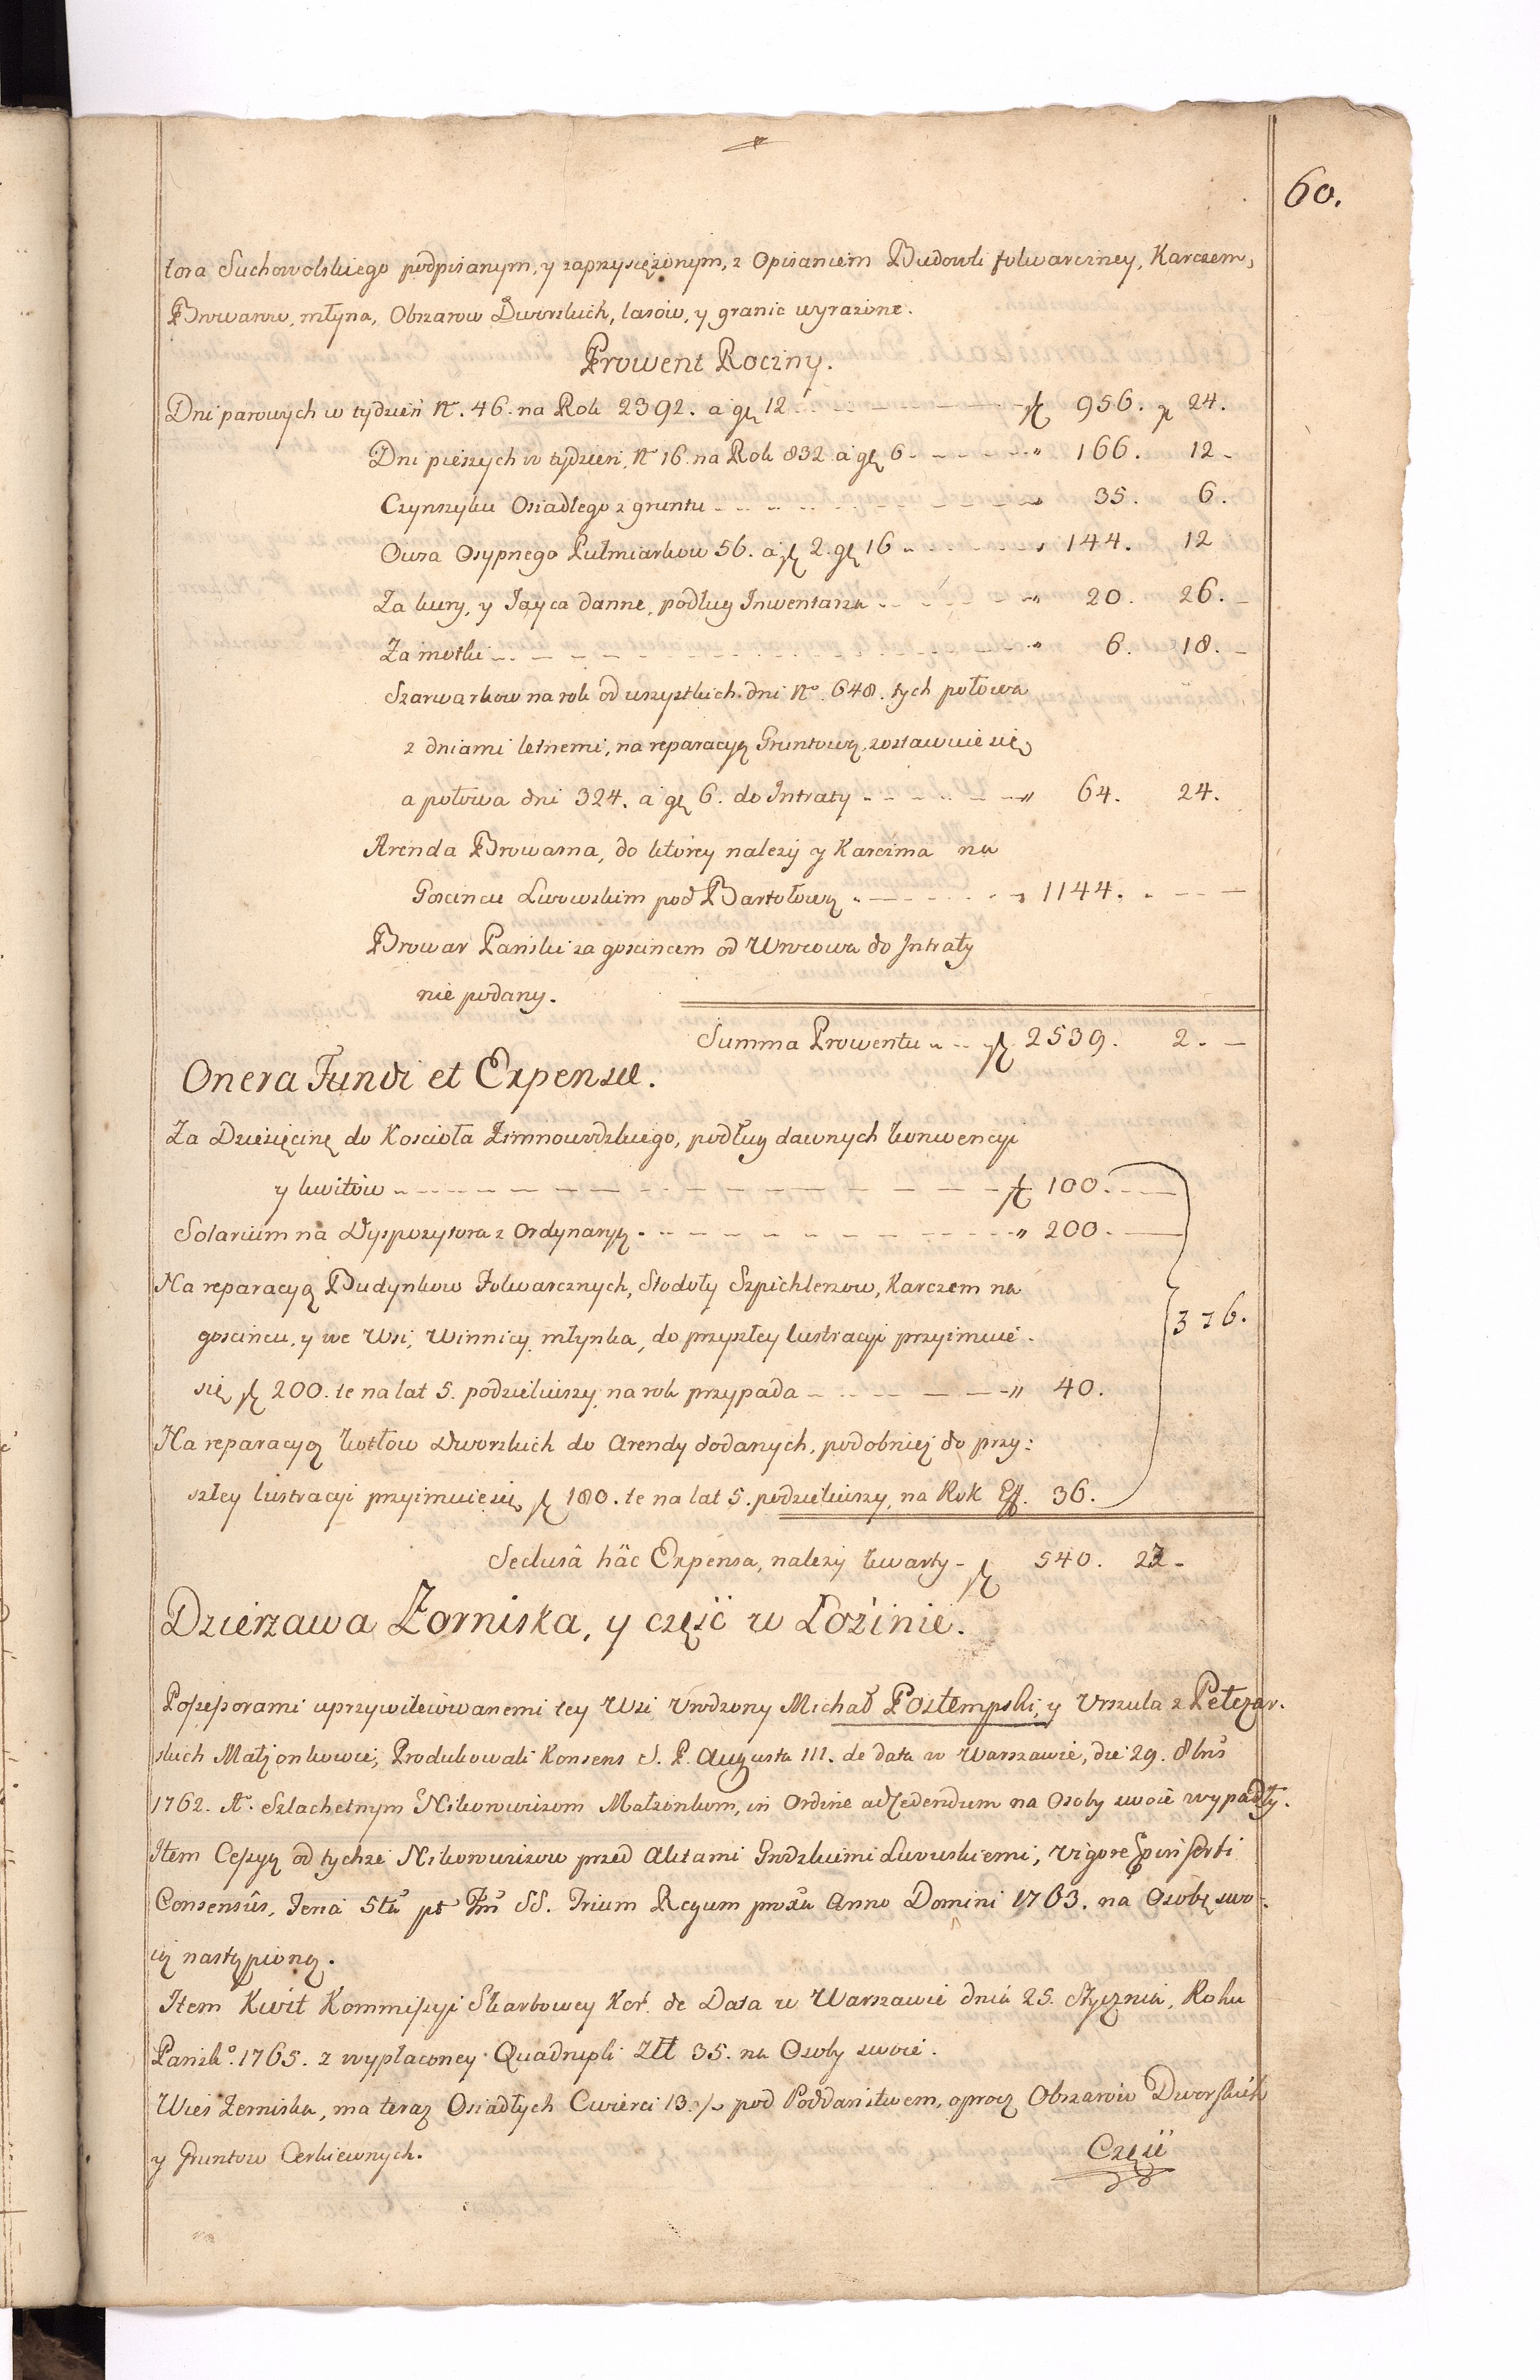 60.
tora Suchowolskiego podpisanym, y zaprzysiężonym, z Opisaniem Budowli folwarczney, Karczem,
Browarow, młyna, Obszarow Dworskich, lasow, y granic wyrażone.
Prowent Roczny.
Dni parowych w tydzień No. 46. na Rok 2392. a gł 12 - - - - fl 956. g 24.
Dni pieszych w tydzień, No 16. na Rok 832. a gł 6 - - - - " 166. 12 -
Czynszyku Osiadłego z gruntu - - - - " 35. 6.
Owsa Osypnego Pułmiarkow 56. a fl 2. gł 16 - - - - " 144. 12
Za kury, y Jayca danne, podług Inwentarza - - - - " 20. 26. -
Za motki - - - - " 6. 18. -
Szarwarkow na rok od wszystkich dni No. 648. tych połowa
z dniami letnemi, na reparacyą Gruntową, zostawuie się,
a połowa dni 324. a gł 6. do Intraty - - - - " 64. 24.
Arenda Browarna, do ktorey należy y Karczma na
Goscincu Lwowskim pod Bartołową - - - - " 1144. - - -
Browar Pański za goscincem od Wnrowa do Intraty
nie podany.
Summa Prowentu - - fl 2539. 2. -
Onera Fundi et Expensæ.
Za Dziesięcinę do Kościoła Zimnowodzkiego, podług dawnych konwencyi
y kwitów - - - - fl 100. - -
Solarium na Dyspozytora z Ordynaryą - - - - " 200. -
Na reparacyą Budynkow Folwarcznych, Stodoły Szpichlerzow, Karczem na
goscincu, y we Wsi, Winnicy, młynka, do przyszłey lustracyi przyimuie
się fl 200. te na lat 5. podzieliwszy, na rok przypada - - - - " 40.
376.
Na reparacyą kotłow Dworskich do Arendy dodanych, podobniej do przy:
szłey lustracyi przyimuie się fl 180. te na lat 5. podzieliwszy, na Rok Eff. 36.
Seclusâ hâc Expensa, należy kwarty - fl 540. 22 -
Dzierżawa Żorniska, y część w Łozinie.
Possessorami uprzywileiowanemi tey Wsi Urodzony Michał Postempski, y Urszula z Pełczar.
skich Małżonkowie, Produkowali Konsens S. P. Augusta III. de data w Warszawie, die 29. 8bris
1762. A. Szlachetnym Nikorowiczom Małżonkom, in Ordine ad cedendum na Osoby swoie wypadły.
Item Cessyą od tychże Nikorowiczow przed Aktami Grodzkiemi Lwowskiemi, vigore præinserti
Consensûs, Feria 5ta pt Fm SS. Trium Regum proxa Anno Domini 1763. na Osoby swo-
ią nastąpioną.
Item Kwit Kommissyi Skarbowey Kor. de Data w Warszawie dnia 25. Stycznia, Roku
Pańsko. 1765. z wypłaconey Quadrupli Złł 35. na Osoby swoie.
Wieś Żerniska, ma teraz Osiadłych Cwierci 13. pod Poddaństwem, oprocz Obszarow Dworskich
y Gruntow Cerkiewnych.
Część